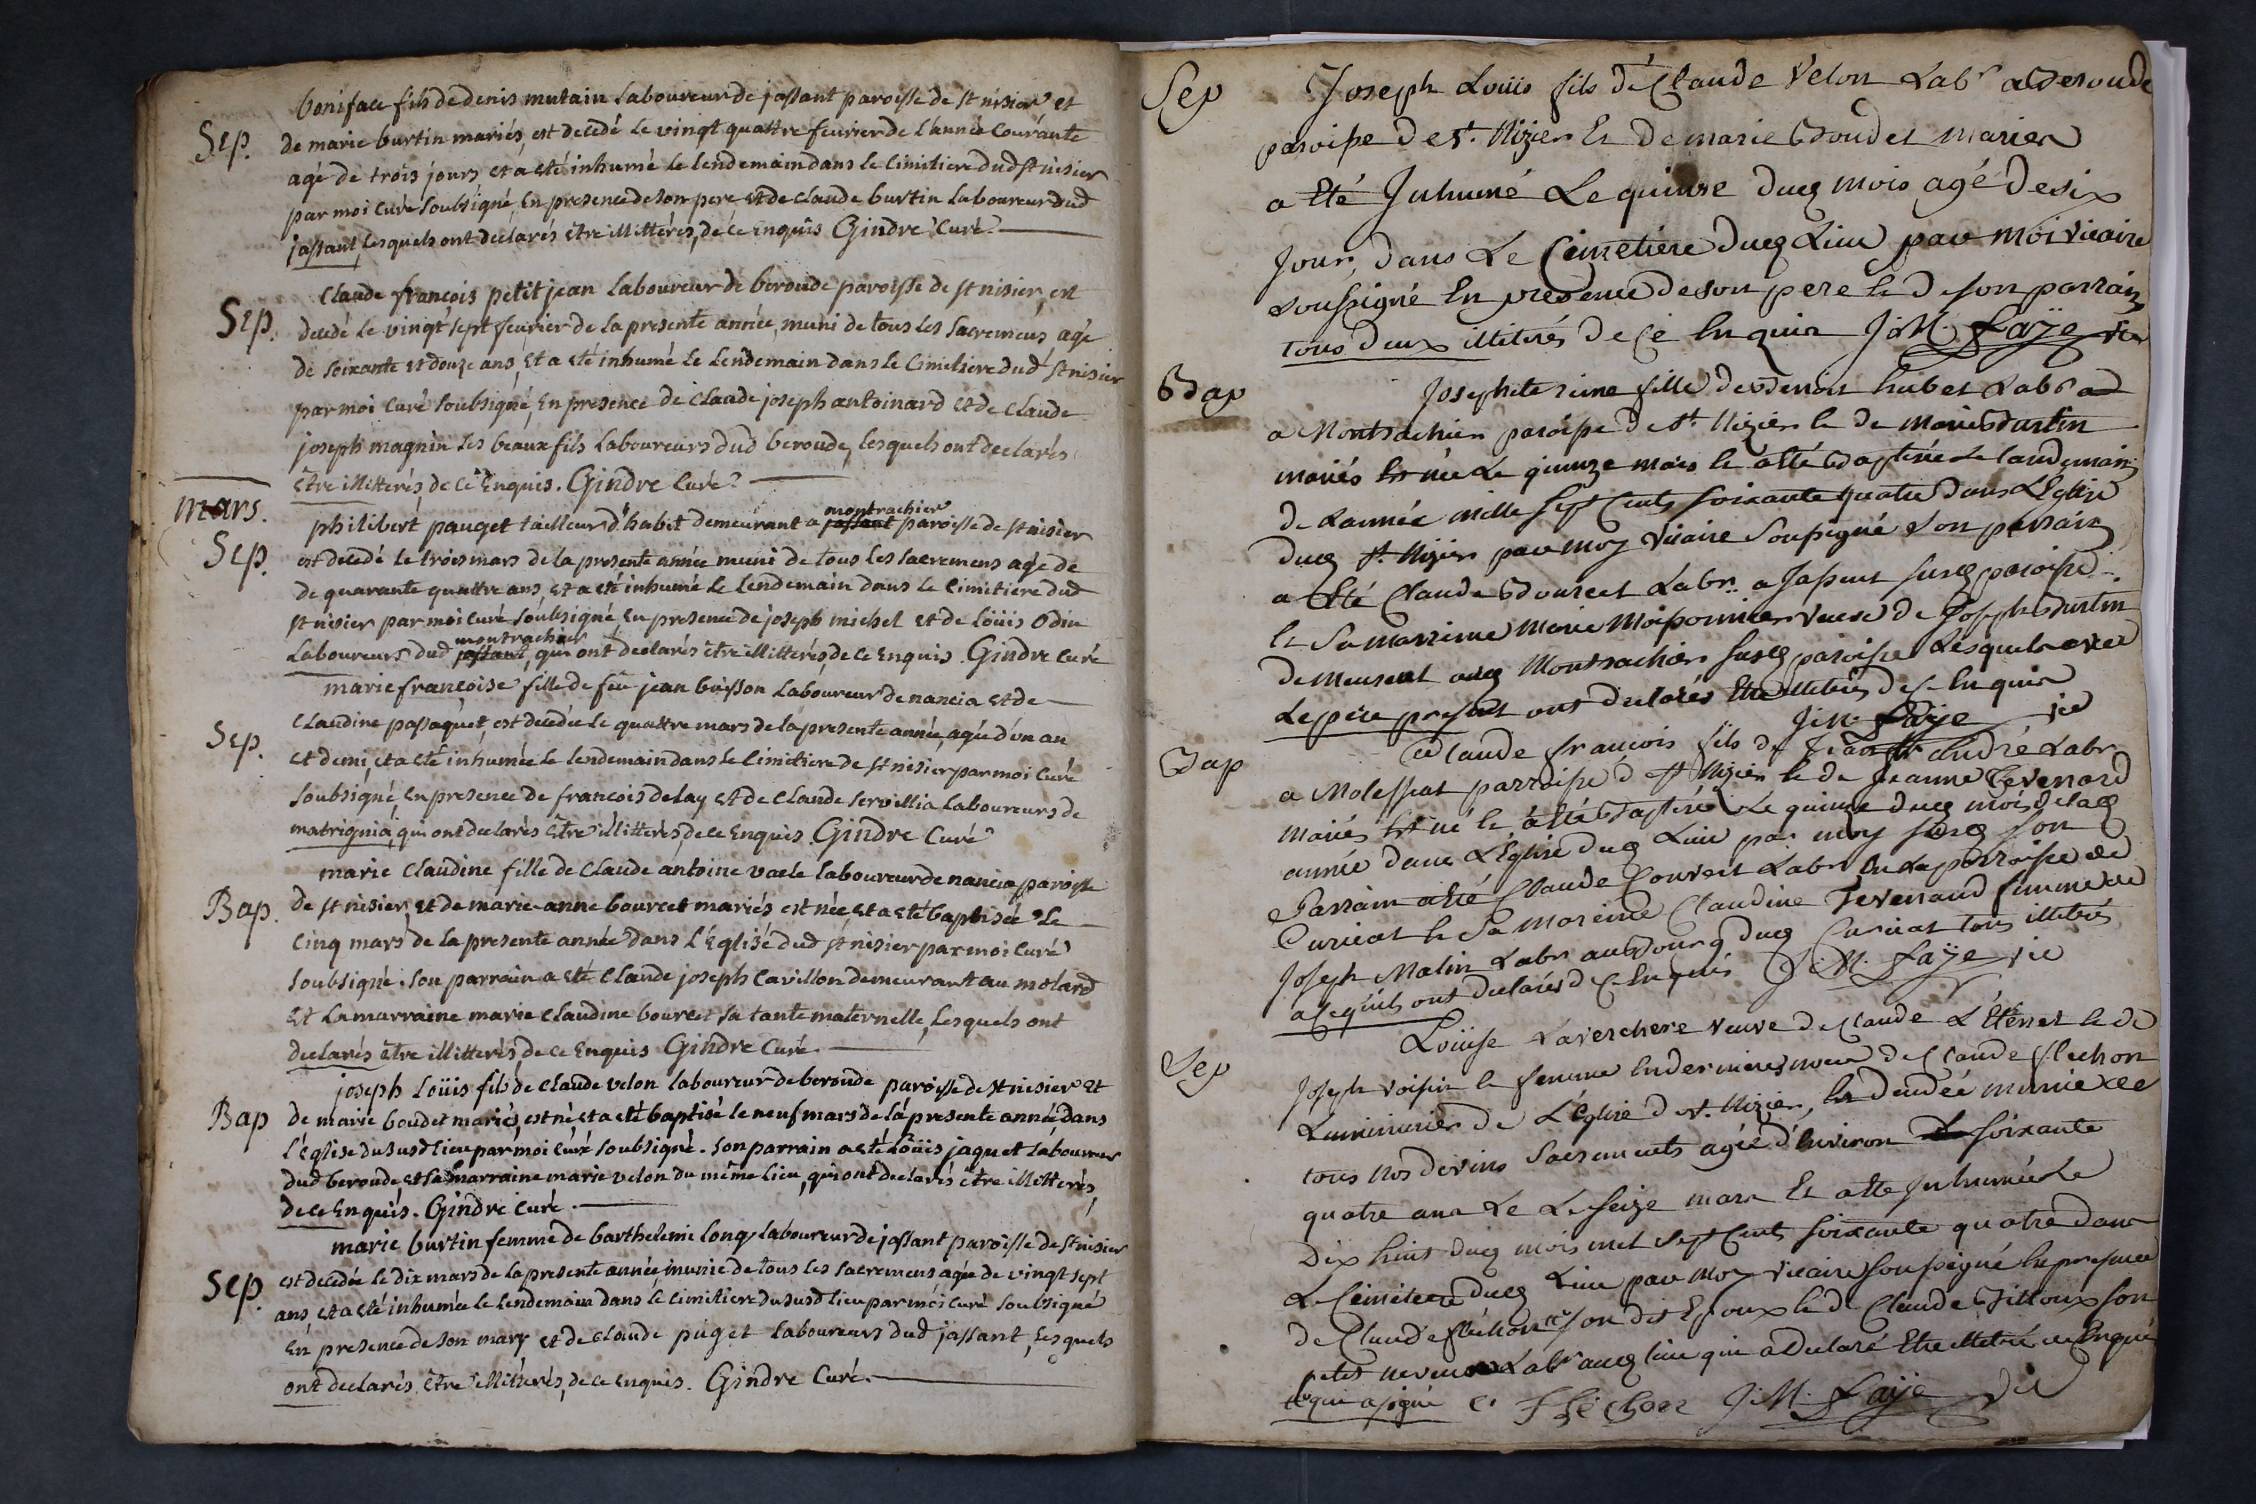 boniface fils de denis mutain laboureur de jassant paroisse de st nisier et
Sep. de marie burtin mariés, est decedé le vingt quattre feurier de l'année courante
agé de trois jours et a eté inhumé le lendemain dans le cimitiere dud st nisier
par moi curé soubsigné, en presence de son pere et de claude burtin laboureur dud
jassant, lesquels ont declarés être illitterés, de ce enquis Gindre Curé
claude françois petitjean laboureur de beroude paroisse de st nisier, est
Sep. decedé le vingt sept feurier de la presente année, muni de tous les sacremens agé
de soixante et douze ans, et a eté inhumé le lendemain dans le cimitiere dud st nisier
par moi curé soubsigné, en presence de claude joseph antoinard et de claude
joseph magnin ses beaux fils laboureurs dud beroude, lesquels ont declarés
être illitterés, de ce enquis. Gindre Curé
mars.
montrachier
philibert pauget tailleur d'habit demeurant a jassant paroisse de st nisier
Sep. est decedé le trois mars de la presente année muni de tous les sacremens agé de
de quarante quattre ans, et a eté inhumé le lendemain dans le cimitiere dud
st nisier par moi curé soubsigné, en presence de joseph michel et de loüis Odin
montrachier
laboureurs dud jassant, qui ont declarés être illitterés, de ce enquis. Gindre Curé
marie françoise fille de feu jean buisson laboureur de nancia et de
Sep. claudine passaquet, est decedée le quattre mars de la presente année, agée d'un an
et demi, et a eté inhumée le lendemain dans le cimitiere de st nisier par moi curé
soubsigné, en presence de francois delay et de claude servillia laboureurs de
matrignia, qui ont declarés être illitterés, de ce enquis. Gindre Curé
marie claudine fille de claude antoine vaele laboureur de nancia paroisse
Bap. de st nisier, et de marie anne bourcet mariés est née, et a eté baptisée le
cinq mars de la presente année dans l'Eglise dud st nisier par moi curé
soubsigné. son parrain a eté claude joseph cavillon demeurant au molard
et la marraine marie claudine bourcet sa tante maternelle, lesquels ont
declarés être illitterés, de ce enquis Gindre Curé
joseph Loüis fils de claude velon laboureur de beroude paroisse de st nisier et
Bap de marie boudet mariés, est né, et a eté baptisé le neuf mars de la presente année dans
l'église du susd lieu par moi curé soubsigné. son parrain a eté Loüis jaquet laboureur
dud beroude, et sa marraine marie velon du même lieu, qui ont declarés être illitterés,
de ce enquis. Gindre Curé.
marie burtin femme de barthelemi long laboureur de jassant paroisse de st nisier
Sep. est decedée le dix mars de la presente année, munie de tous les sacremens agée de vingt sept
ans, et a eté inhumée le lendemain dans le cimitiere du susd lieu par moi curé soubsigné
En presence de son mary et de claude puget laboureurs dud jassant, lesquels
ont declarés être illitterés, de ce enquis. Gindre Curé.
Sep Joseph Louis fils de Claude Velon Labr a Beroude
paroisse de st. Nizier Et de marie Boudet mariés
a Eté Inhumé Le quinze ducq mois agé de six
Jour, dans Le Cimetiere ducq Lieu par moi vicaire
soussigné En presence de son pere Et de son parrain
tous deux illiterés de ce Enquis J. M. Faÿe vic
Bap fille de Benoit hubet Labr
a Montrachier paroisse de st Nizier Et de marie Burtin
mariés Est née Le quinze mars Et a Eté Baptisée Le landemain
de Lannée mille sept Cents soixante quatre dans L'Eglise
ducq st. Nizier par moy vicaire soussigné son parrain
a Eté Claude Bourcet Labr. a Jassant susq paroisse
Et sa marreine Marie Moissonnier veuve de Joseph Burtin
demeurent aucq Montrachier susq paroisse Lesquels avec
Le pere present ont declarés Etre illiterés de ce Enquis
J. M. Faÿe vic
Bap Claude françois fils de Jean andré Labr
a Molessiat parroisse de st Nizier Et de Jeanne Tevenard
mariés Est né Et a Eté Baptisé Le quinze ducq mois de lacq
année dans L'Eglise ducq Lieu par moy susq son
Parrain a eté Claude Convert Labr En La parroisse de
Curciat Et sa Mareine Claudine Tevenard femme de
Joseph Malin Labr au Bourg ducq Curciat tous illiterés
a Ce qu'ils ont declarés de ce Enquis J. M. Faÿe vic
Sep Loüise Laverchere veuve de Claude L'Eternet Et de
Joseph voisin Et femme En dernieres noces de Claude flechon
Luminier de L'Eglise de st. Nizier, Est decedée munie de
tous nos divins sacrements agée d'Environ soixante
quatre ans Le Seize mars Et a Ete Inhumée Le
Dix huit ducq mois mil sept Cents soixante quatre dans
Le Cimetiere ducq Lieu par moy vicaire soussigné En presence
de Claude flechon son dit Epoux Et de Claude Billoux son
petit neveu Labr aucq lieu qui a Declaré Etre illiteré de ce Enquis
qui a signé C. Fléchon J. M. Faÿe vic